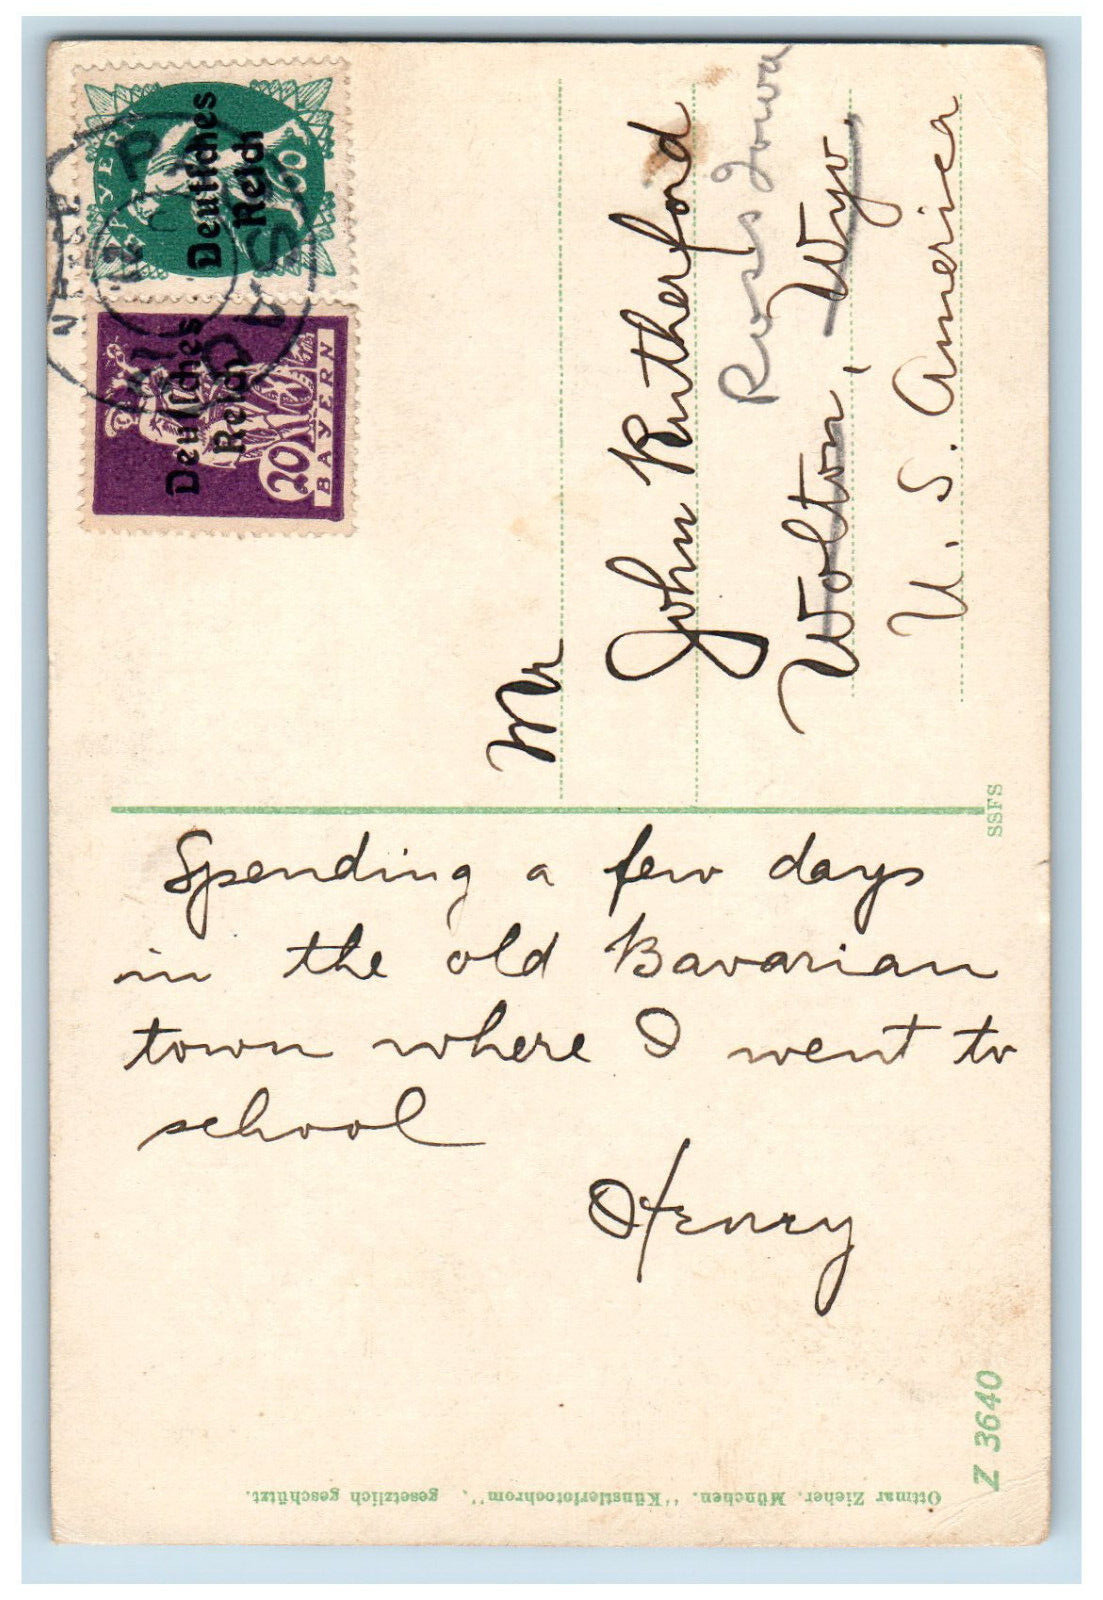 BAYERN
60
Deutsches
Reich
20
BAYERN
Deutsches
Reich
PASSAU
Mr
John Rutherford
Ross Iowa
Wolton, Wyo.
U. S. America
SSFS
Spending a few days
in the old Bavarian
town where I went to
school
Henry
Z 3640
Ottmar Zieher, München. "Künstlerfotochrom", gesetzlich geschützt.